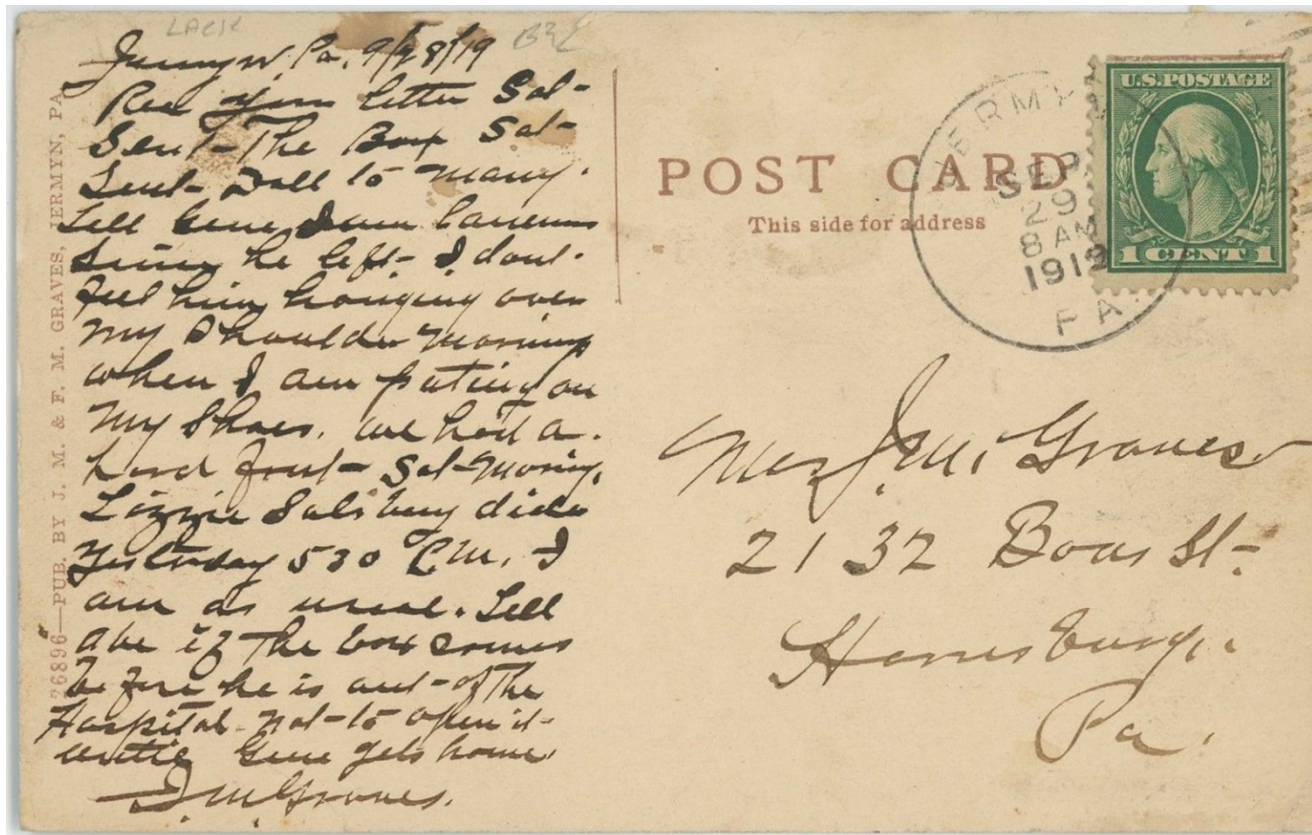 LACK
Jermyn. Pa. 9/28/19
Rec your letter Sat-
Sent- The Box Sat-
Sent- Doll to Mary.
Tell Gene I am
Since he left- I dont-
feel him hanging over
My Shoulder Mornings
when I am puting on
My Shoes. we had a
hard frost- Sat- Morning.
Lizzie Salsbury died
Yesterday 530 P.M. I
am as usual. Tell
Abe if The box comes
before he is out- of The
Hospital not- to open it-
until Gene gets home.
J. M. Graves.
26896—PUB. BY J. M. & F. M. GRAVES, JERMYN, PA.
POST CARD
This side for address
JERMYN
SEP
29
8 AM
1919
PA.
U.S. POSTAGE
1 CENT 1
Mrs J. M. Graves
2132 Boas St-
Harrisburg.
Pa.